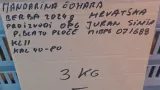 MANDARINA ČOHARA
BERBA 2024g HRVATSKA
PROIZVODI OPG JURAN SINIŠA
P. BLATO PLOČE MIBPG 071688
KL II
KAL 40-PO
3 KG